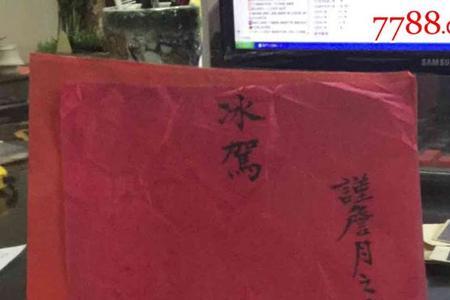 謹詹月之
冰駕
7788.c
SAMSUNG